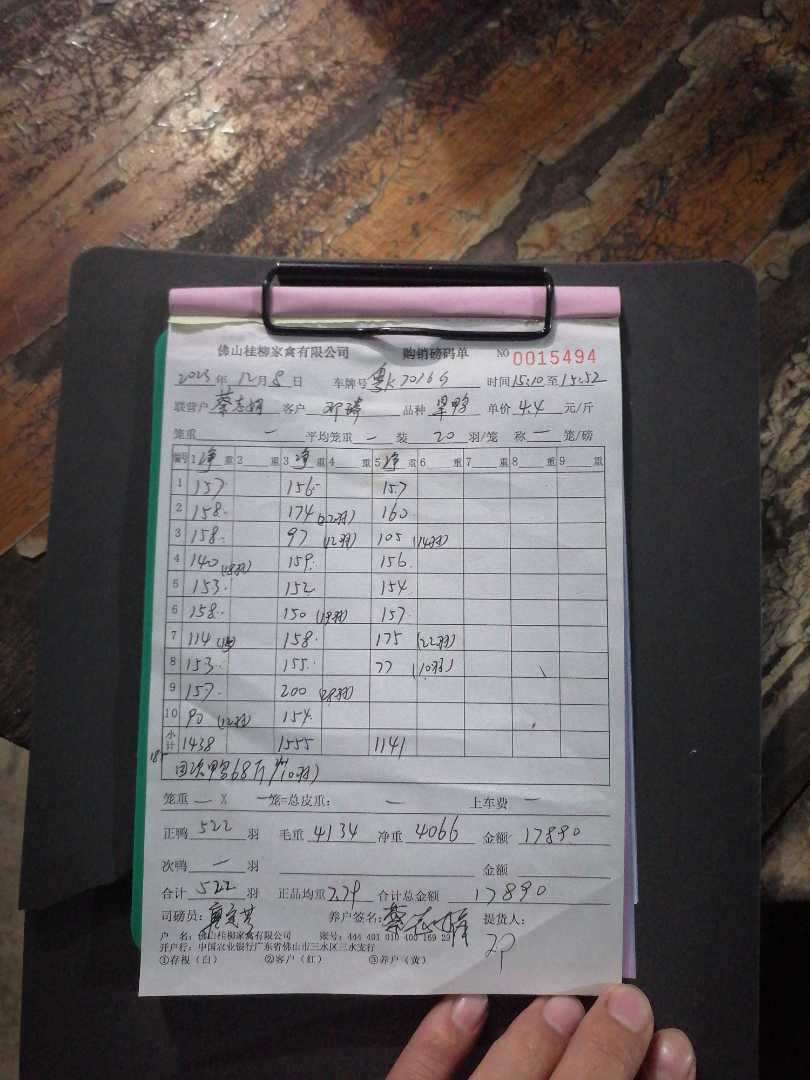 佛山桂柳家禽有限公司 购销磅码单 NO 0015494
2023年12月8日 车牌号 粤K 时间15:10至15:52
联营户 蔡志娟 客户 邓 品种 单价 4.4 元/斤
笼重 一 平均笼重 一 装 20 羽/笼 称 一 笼/磅
编号 1 净 重 2 重 3 净 重 4 重 5 净 重 6 重 7 重 8 重 9 重
1 157 156 157
2 158 174 (22羽) 160
3 158 97 (12羽) 105 (14羽)
4 140 (18羽) 159 156
5 153 152 154
6 158 150 (19羽) 157
7 114 158 175 (22羽)
8 153 155 77 (10羽)
9 157 200
10 90 (12羽) 154
小计 1438 1555 1141
鸭68斤 (10羽)
笼重 一 X 一 笼=总皮重: 一 上车费 一
正鸭 522 羽 毛重 4134 净重 4066 金额 17890
次鸭 一 羽 金额
合计 522 羽 正品均重 7.79 合计总金额 17890
司磅员: 养户签名: 蔡志 提货人:
户 名: 佛山桂柳家禽有限公司 账号: 444 401 010 400 169 29
开户行: 中国农业银行广东省佛山市三水区三水支行
①存根（白） ②客户（红） ③养户（黄）